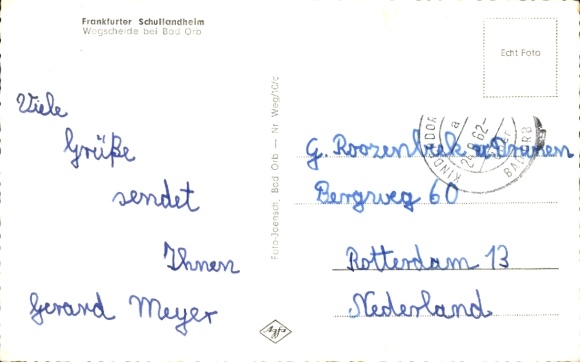 Frankfurter Schullandheim
Wegscheide bei Bad Orb
Echt Foto
Viele
Grüße
sendet
Ihnen
Gerard Meyer
Foto-Joensch, Bad Orb — Nr. Weg/10/c
KINDERDOR
BAD ORB
G. Roozenbeek v. Drunen
Bergweg 60
Rotterdam 13
Nederland